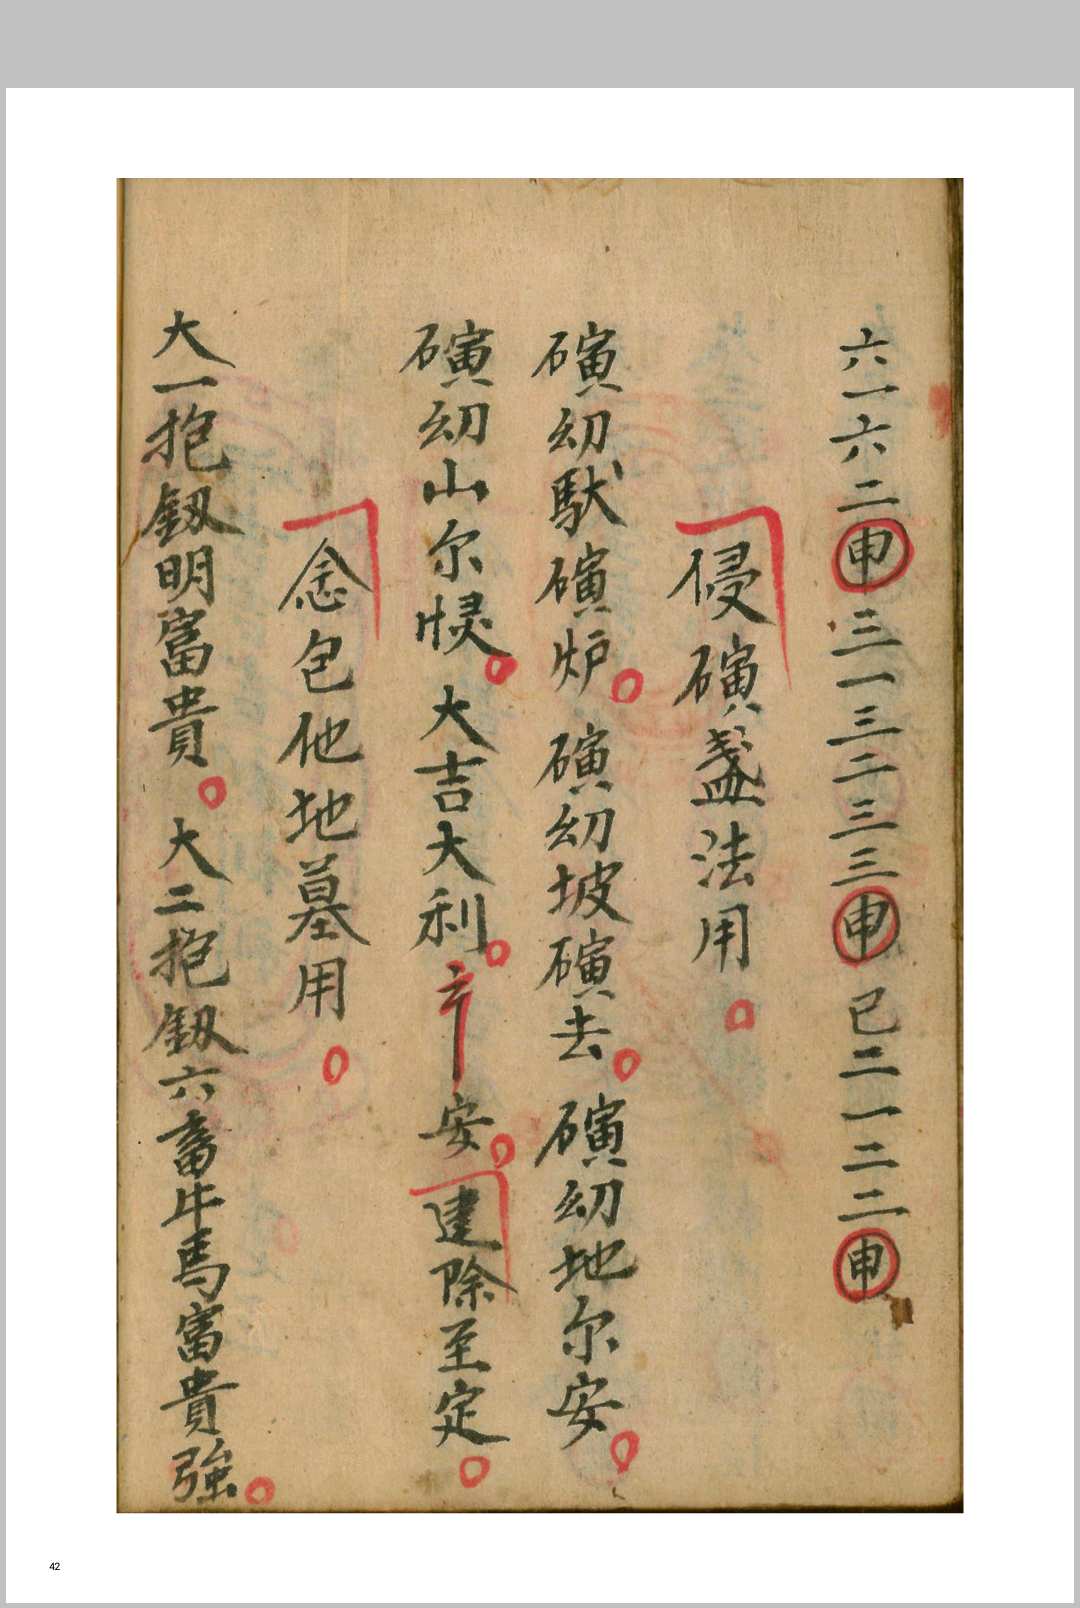 六一六二申三一三二三三申已二一二二申
侵磺盏法用
磺幼馱磺炉磺幼坡磺去磺幼地尔安
磺幼山尔大吉大利安建除至定
念包他地墓用
大一抱釼明富貴大二抱釼六畜牛馬富貴強
42